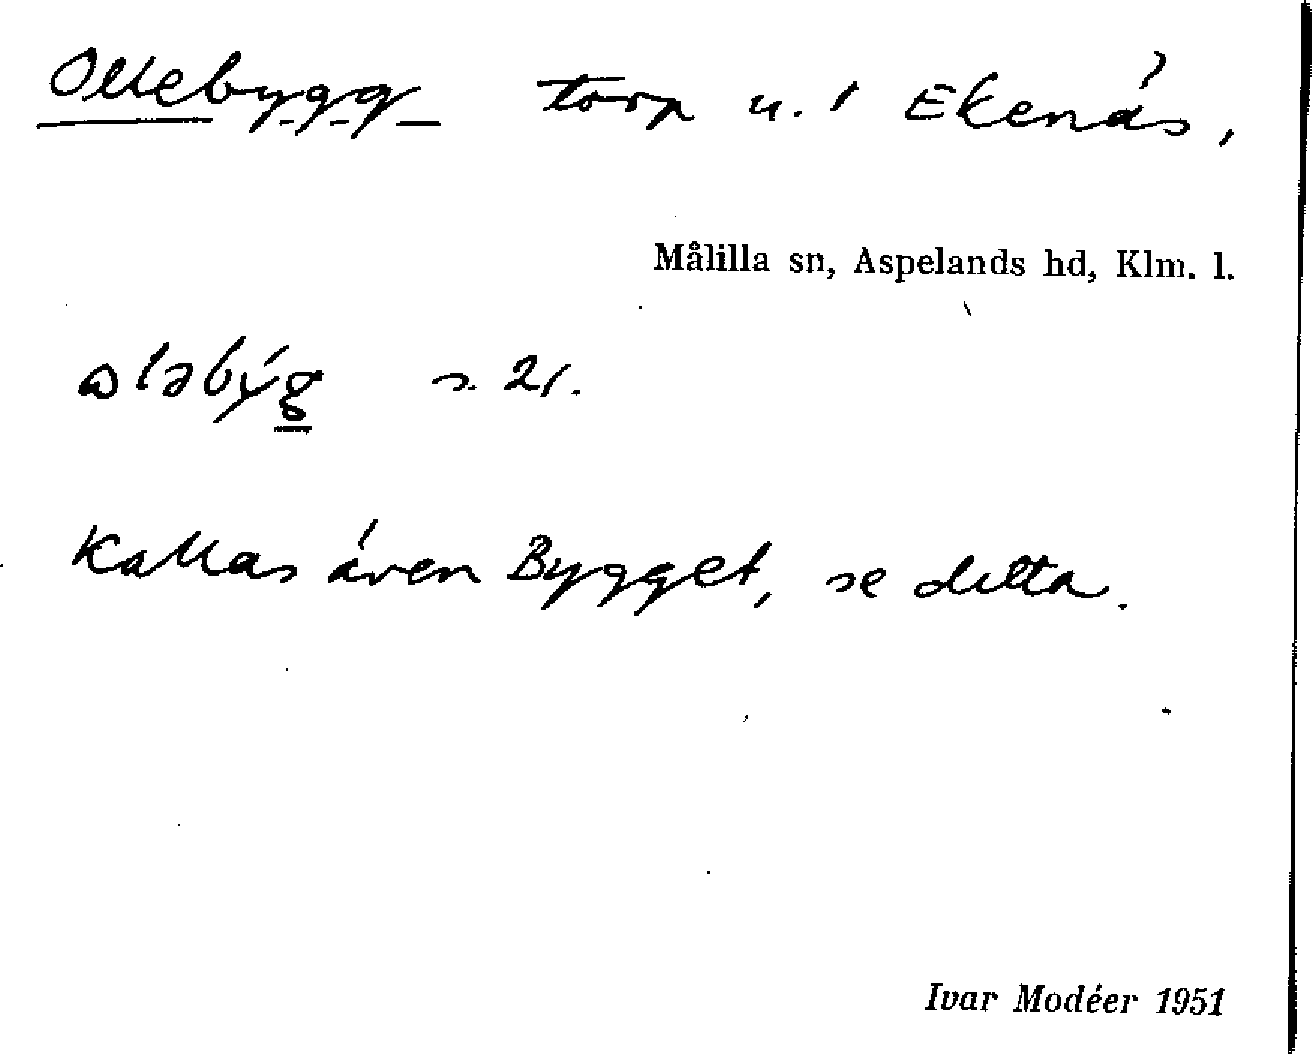 Ollebygg torp u. 1 Ekenäs,
Målilla sn, Aspelands hd, Klm. l.
s. 21.
Kallas även Bygget, se detta.
Ivar Modéer 1951